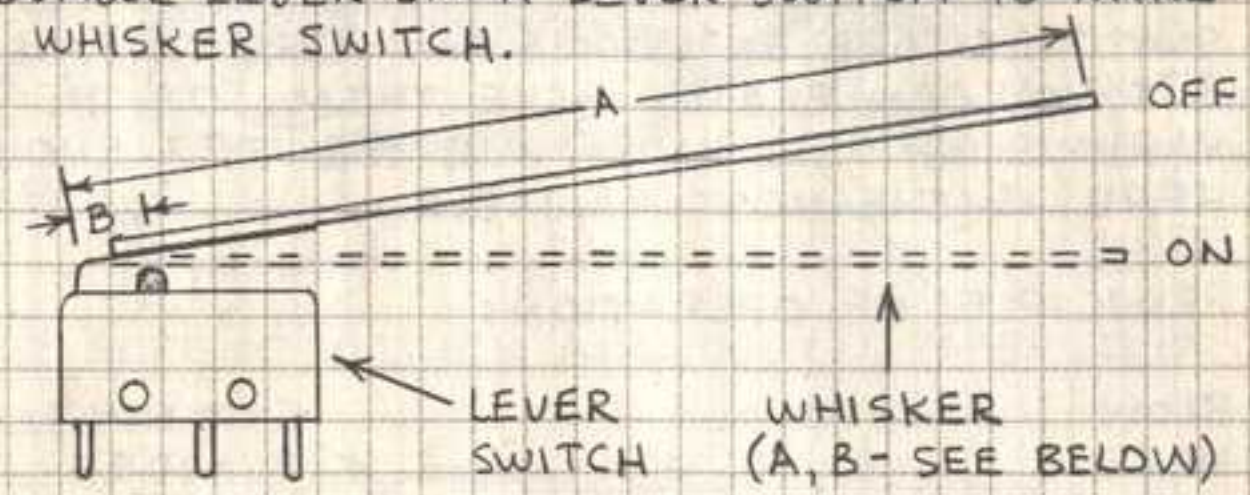 WHISKER SWITCH.
A
OFF
B
ON
LEVER
SWITCH
WHISKER
(A, B - SEE BELOW)